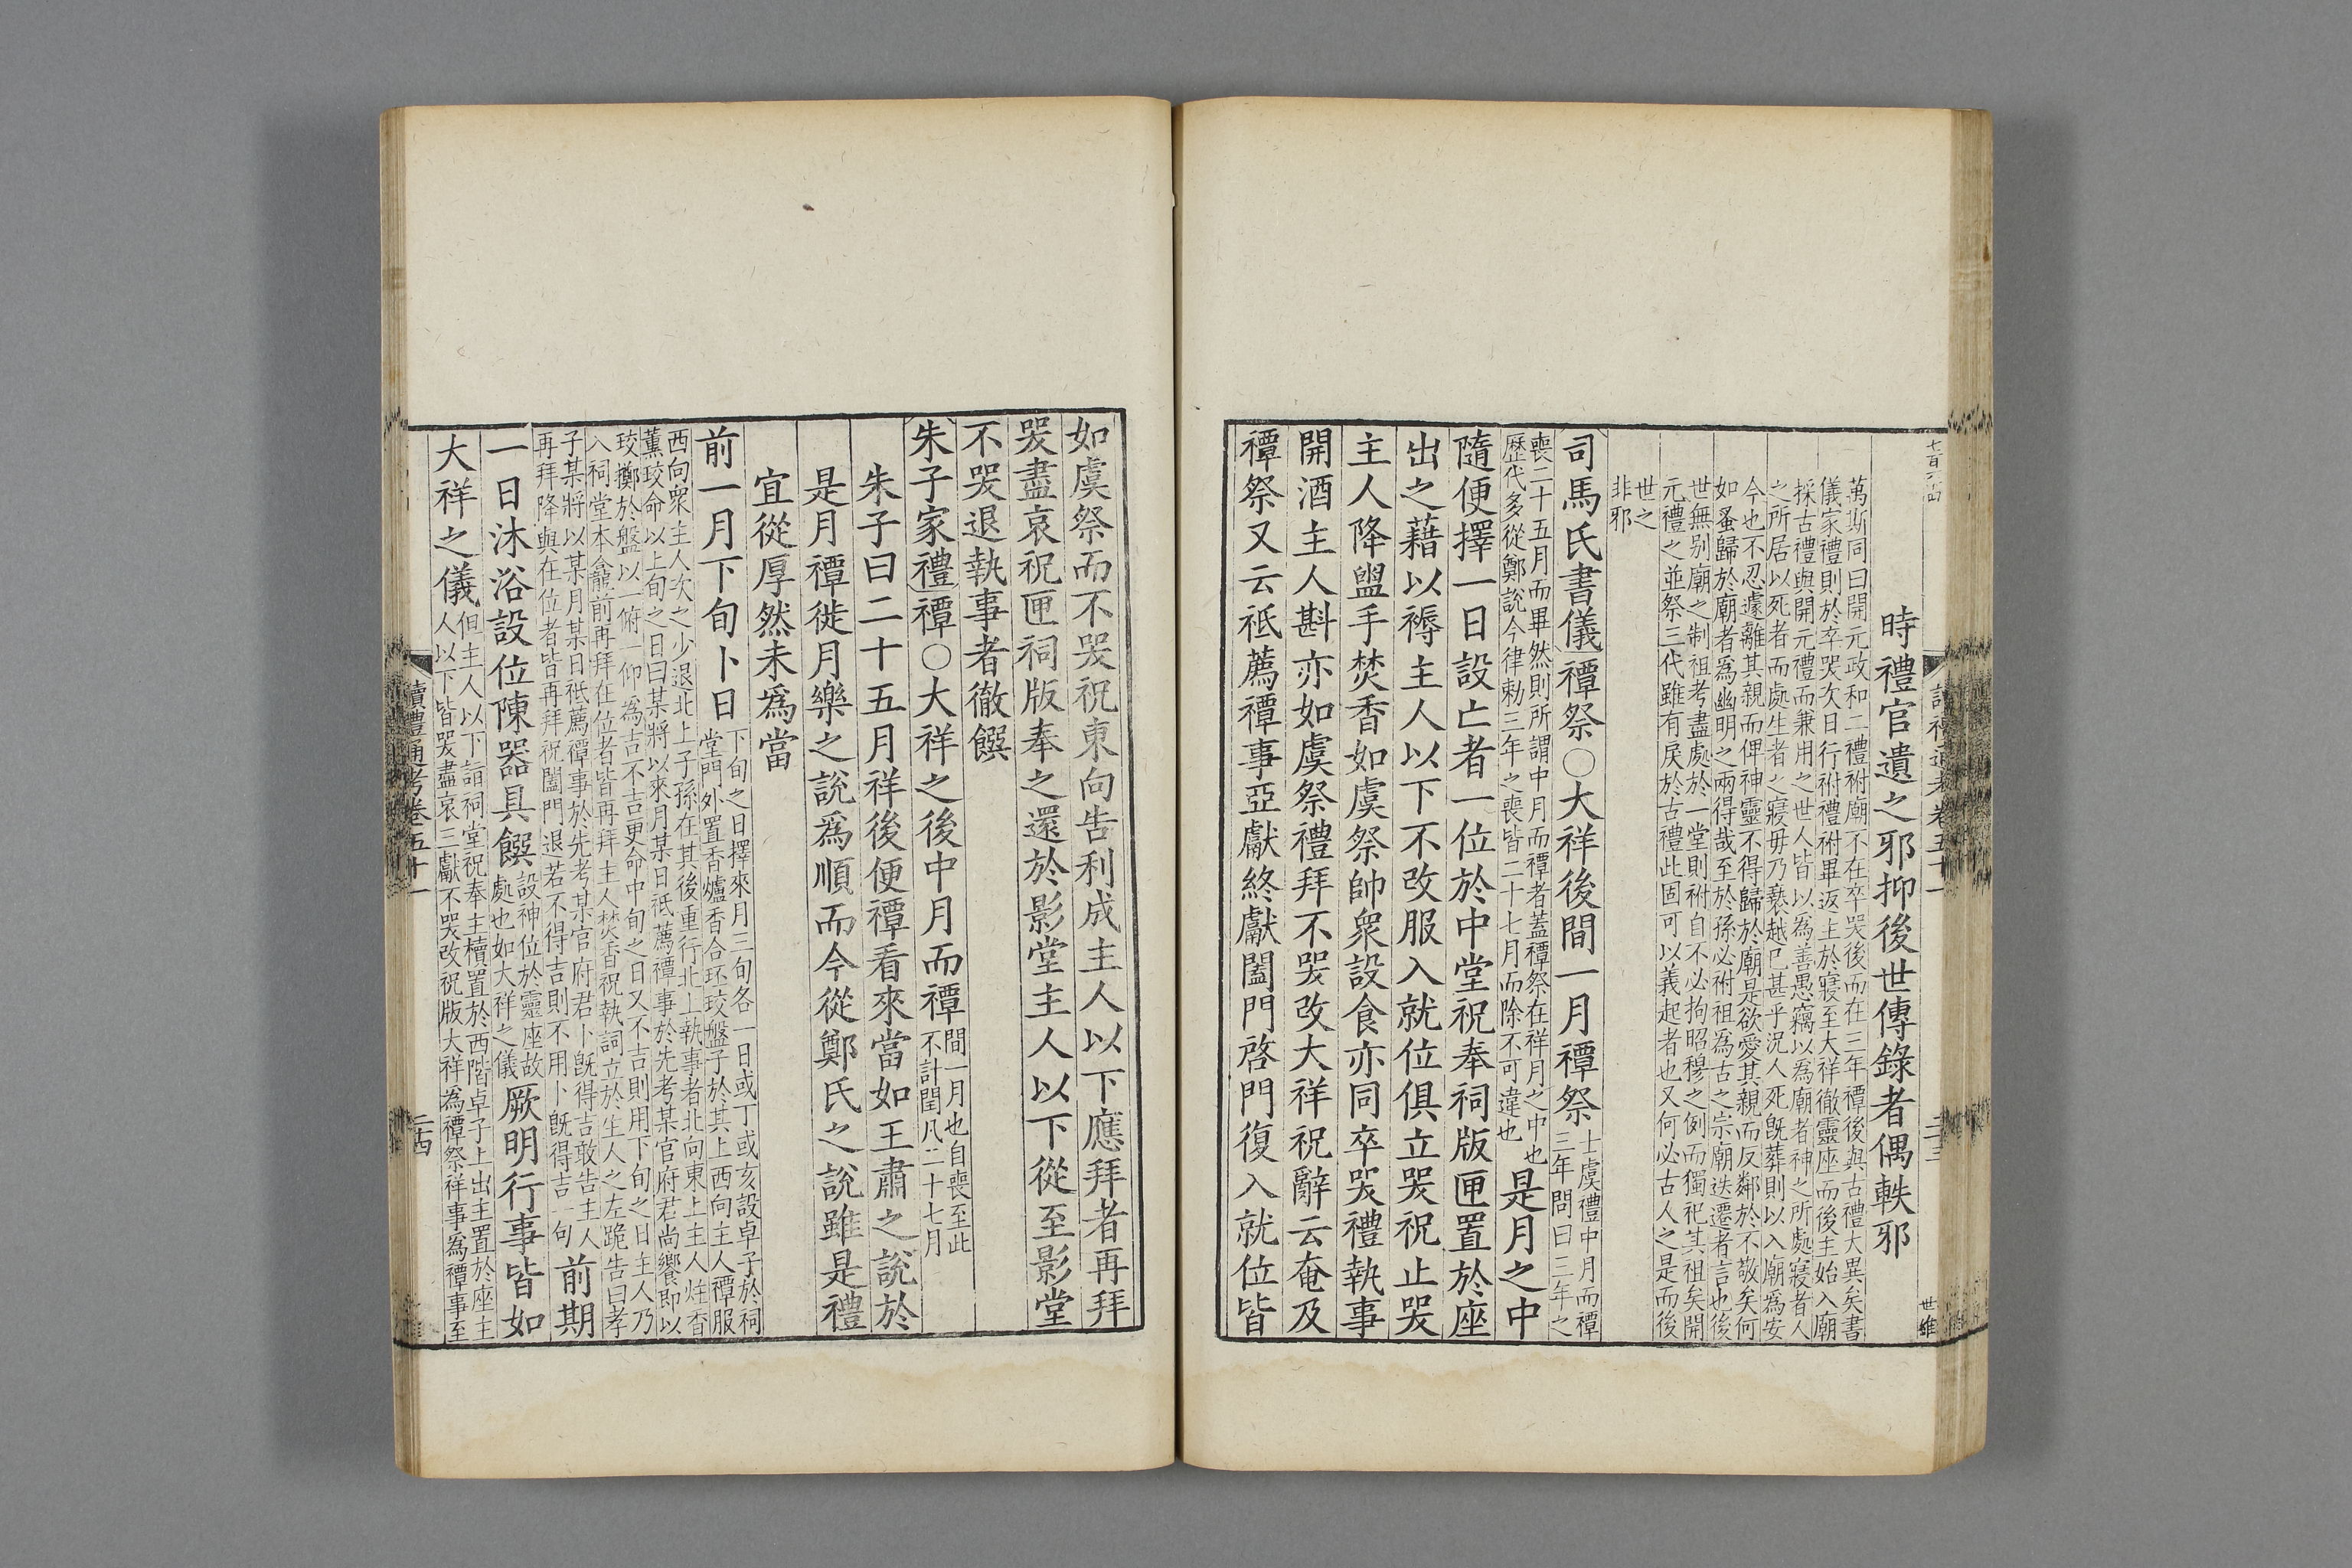 時禮官遺之邪抑後世傳錄者偶軼邪
萬斯同曰開元政和二禮祔廟不在卒哭後而在三年禫後與古禮大異矣書
儀家禮則於卒哭次日行祔禮祔畢返主於寢至大祥徹靈座而後主始入廟
採古禮與開元禮而兼用之世人皆以爲善愚竊以爲廟者神之所處寢者人
之所居以死者而處生者之寢毋乃褻越已甚乎況人死旣葬則以入廟爲安
今也不忍遽離其親而俾神靈不得歸於廟是欲愛其親而反鄰於不敬矣何
如蚤歸於廟者爲幽明之兩得哉至於孫必祔祖爲古之宗廟迭遷者言也後
世無别廟之制祖考盡處於一堂則祔自不必拘昭穆之例而獨祀其祖矣開
元禮之並祭三代雖有戾於古禮此固可以義起者也又何必古人之是而後
世之
非邪
司馬氏書儀禫祭○大祥後間一月禫祭士虞禮中月而禫
三年問曰三年之
喪二十五月而畢然則所謂中月而禫者蓋禫祭在祥月之中也
歷代多從鄭說今律勑三年之喪皆二十七月而除不可違也是月之中
隨便擇一日設亡者一位於中堂祝奉祠版匣置於座
出之藉以褥主人以下不改服入就位俱立哭祝止哭
主人降盥手焚香如虞祭帥衆設食亦同卒哭禮執事
開酒主人斟亦如虞祭禮拜不哭改大祥祝辭云奄及
禫祭又云祗薦禫事亞獻終獻闔門啓門復入就位皆
如虞祭而不哭祝東向告利成主人以下應拜者再拜
哭盡哀祝匣祠版奉之還於影堂主人以下從至影堂
不哭退執事者徹饌
朱子家禮禫○大祥之後中月而禫間一月也自喪至此
不計閏凡二十七月
朱子曰二十五月祥後便禫看來當如王肅之說於
是月禫徙月樂之說爲順而今從鄭氏之說雖是禮
宜從厚然未爲當
前一月下旬卜日下旬之日擇來月三旬各一日或丁或亥設卓子於祠
堂門外置香爐香合环珓盤子於其上西向主人禫服
西向衆主人次之少退北上子孫在其後重行北上執事者北向東上主人炷香
薰珓命以上旬之日曰某將以來月某日祗薦禫事於先考某官府君尚饗即以
珓擲於盤以一俯一仰爲吉不吉更命中旬之日又不吉則用下旬之日主人乃
入祠堂本龕前再拜在位者皆再拜主人焚香祝執詞立於主人之左跪告曰孝
子某將以某月某日祗薦禫事於先考某官府君卜旣得吉敢告主人
再拜降與在位者皆再拜祝闔門退若不得吉則不用卜旣得吉一句前期
一日沐浴設位陳器具饌設神位於靈座故
處也如大祥之儀厥明行事皆如
大祥之儀但主人以下詣祠堂祝奉主櫝置於西階卓子上出主置於座主
人以下皆哭盡哀三獻不哭改祝版大祥爲禫祭祥事爲禫事至
讀禮通考卷五十一
二十四